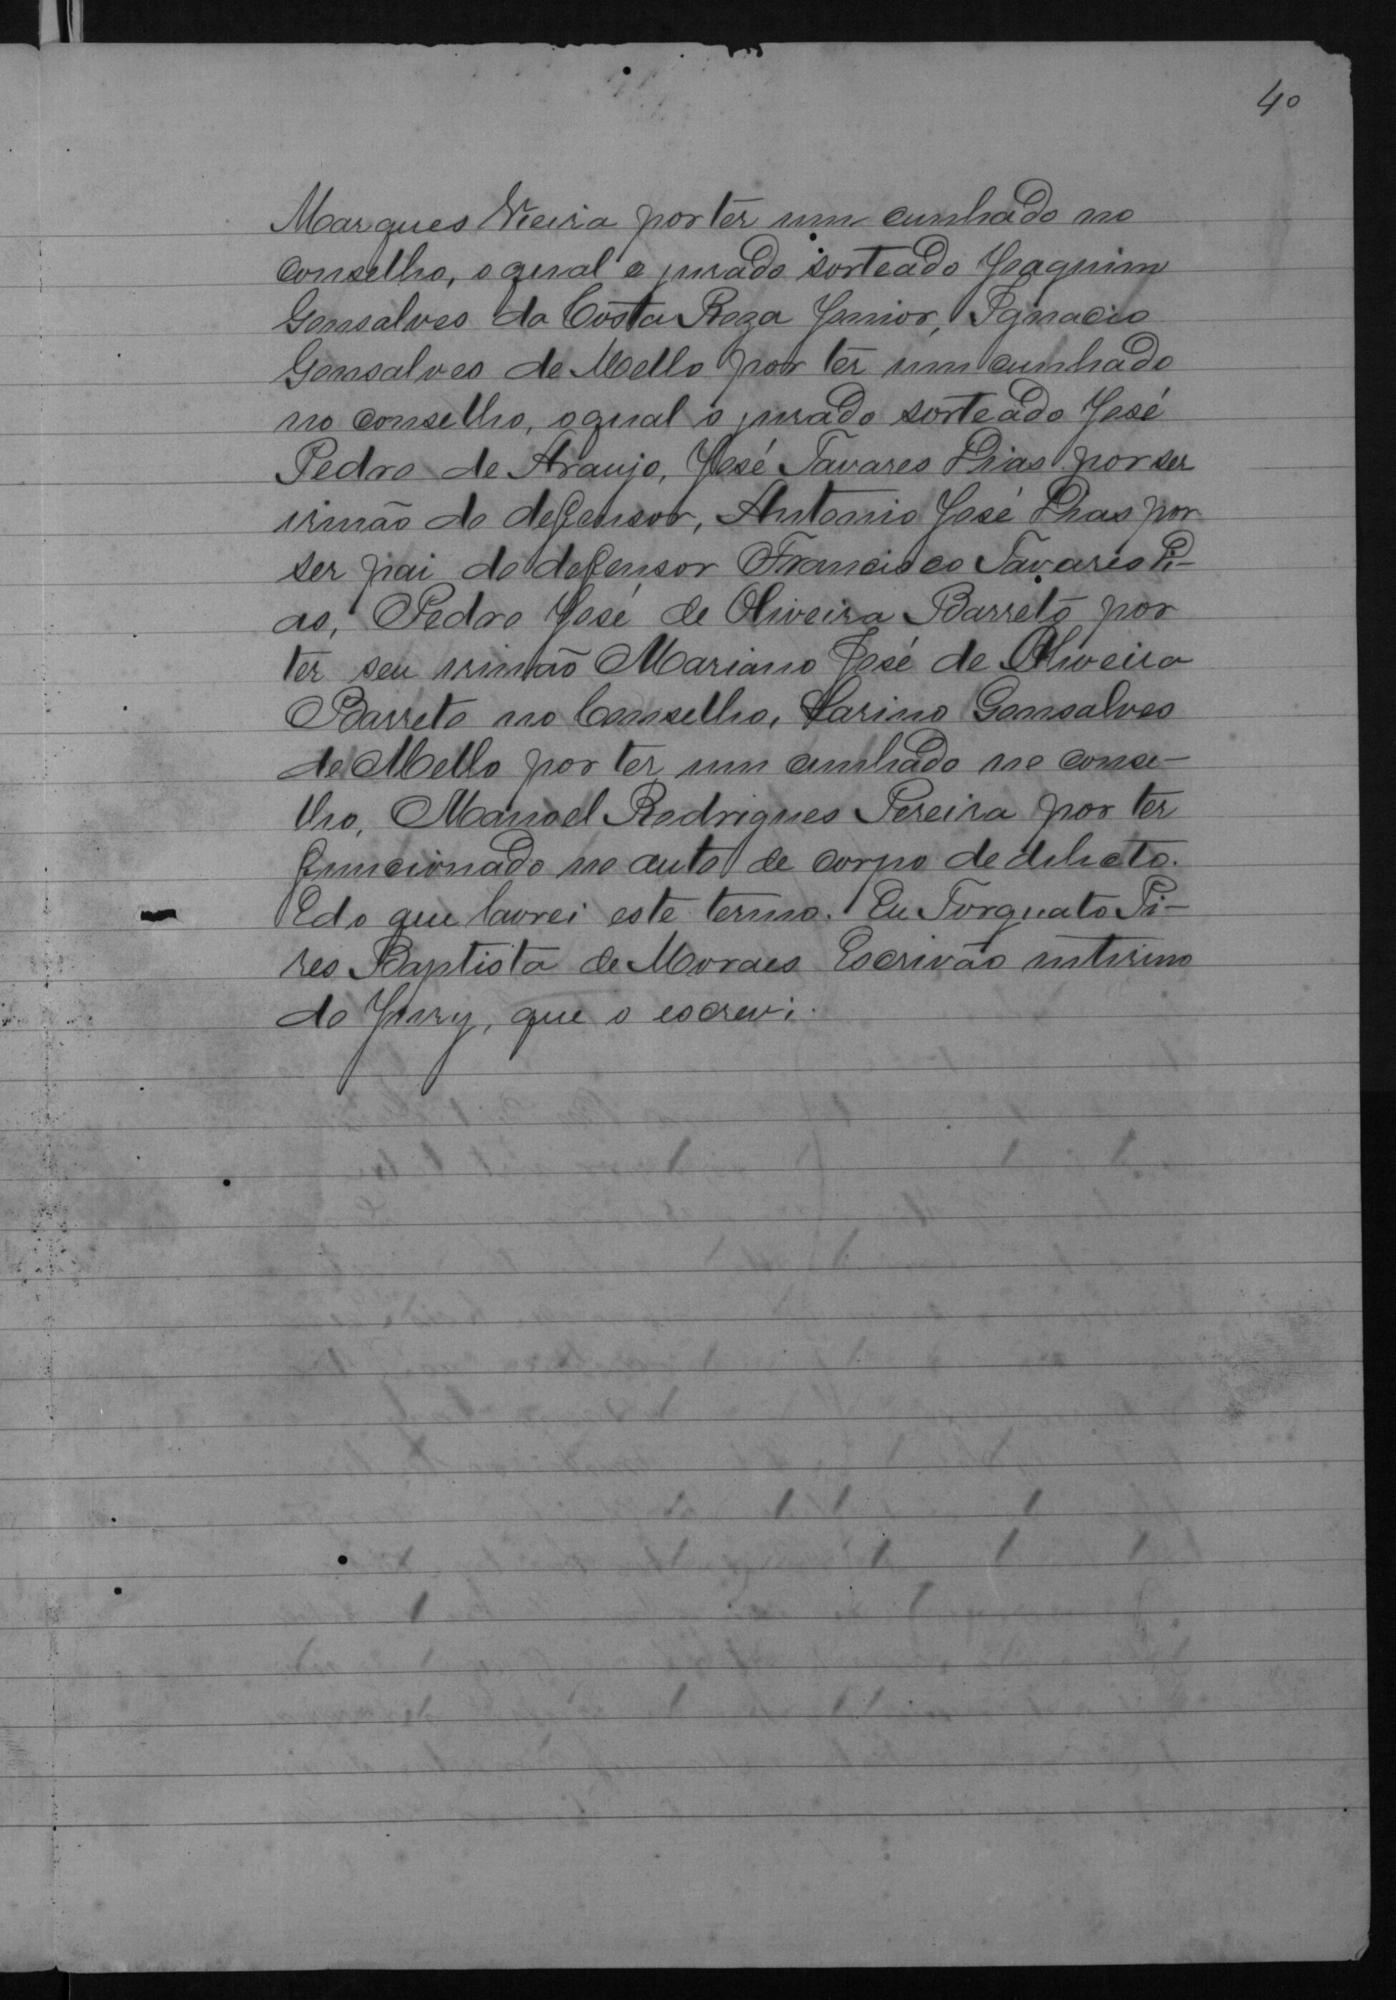 40
Marques Vieira por ter um cunhado no
conselho, o qual e jurado sorteado Joaquim
Gonsalves da Costa Roza Junior, Ignacio
Gonsalves de Mello por ter um cunhado
no conselho, o qual o jurado sorteado José
Pedro de Araujo, José Tavares Dias por ser
irmão do defensor, Antonio José Dias por
ser pai do defensor Francisco Tavares Di-
as, Pedro José de Oliveira Barreto por
ter seu irmão Mariano José de Oliveira
Barreto no Conselho, Marino Gonsalves
de Mello por ter um cunhado no conse-
lho, Manoel Rodrigues Pereira por ter
funcionado no auto de corpo de delicto.
E do que lavrei este termo. Eu Torquato Pi-
res Baptista de Moraes Escrivão interino
do Jury, que o escrevi.